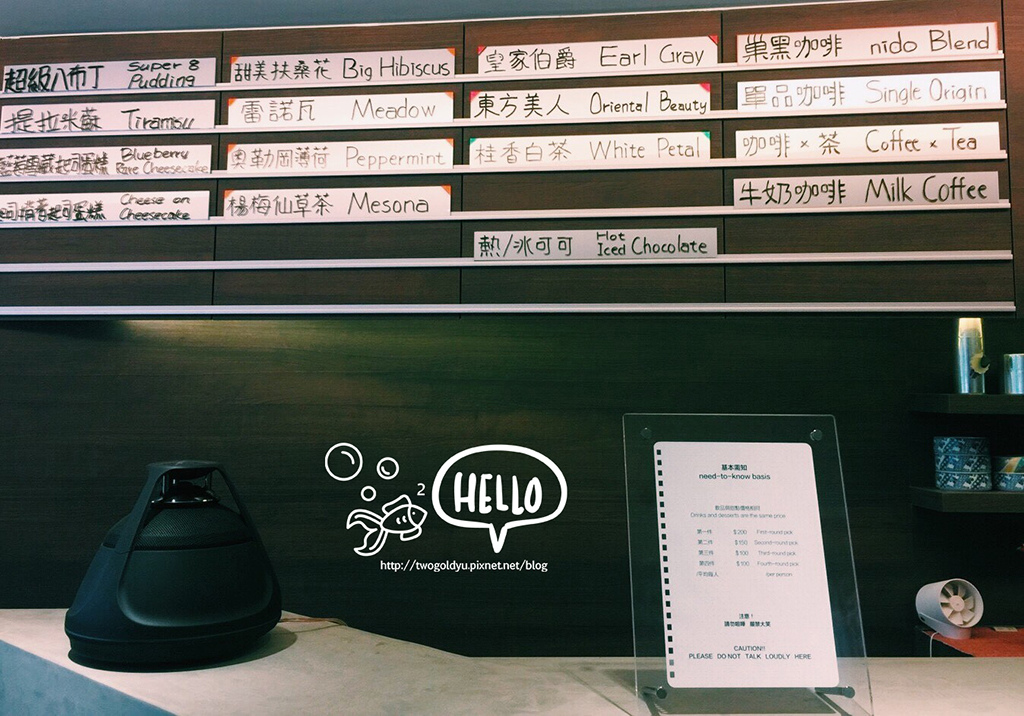 超級八布丁 Super 8 Pudding
提拉米蘇 Tiramisu
Blueberry Rare Cheesecake
Cheese on Cheesecake
甜美扶桑花 Big Hibiscus
雷諾瓦 Meadow
奧勒岡薄荷 Peppermint
楊梅仙草茶 Mesona
皇家伯爵 Earl Gray
東方美人 Oriental Beauty
桂香白茶 White Petal
熱/冰可可 Hot Iced Chocolate
巢黑咖啡 nido Blend
單品咖啡 Single Origin
咖啡×茶 Coffee × Tea
牛奶咖啡 Milk Coffee
2
HELLO
http://twogoldyu.pixnet.net/blog
基本需知
need-to-know basis
Drinks and desserts are the same price
第一件 $200 First-round pick
第二件 $150 Second-round pick
第三件 $100 Third-round pick
第四件 $100 Fourth-round pick
/per person
注意！
請勿喧嘩
CAUTION!!
PLEASE DO NOT TALK LOUDLY HERE